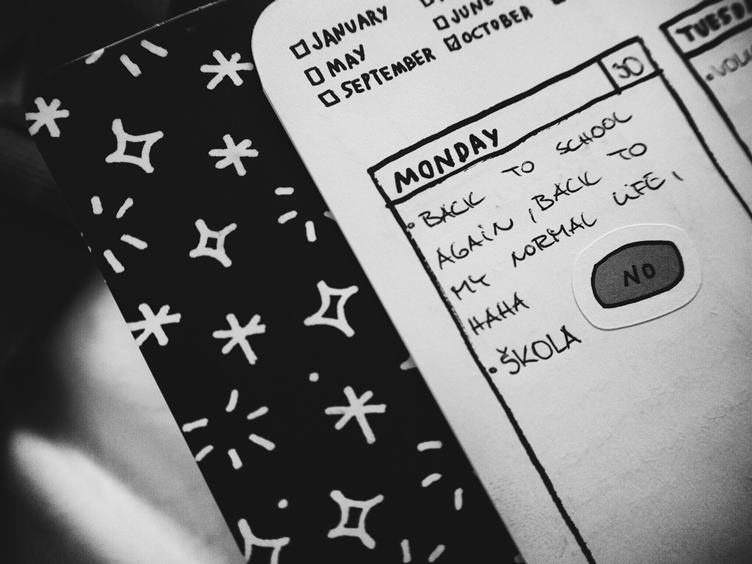 JANUARY
MAY
JUNE
SEPTEMBER
OCTOBER
MONDAY
30
• BACK TO SCHOOL
AGAIN, BACK TO
MY NORMAL LIFE,
HAHA
NO
• ŠKOLA